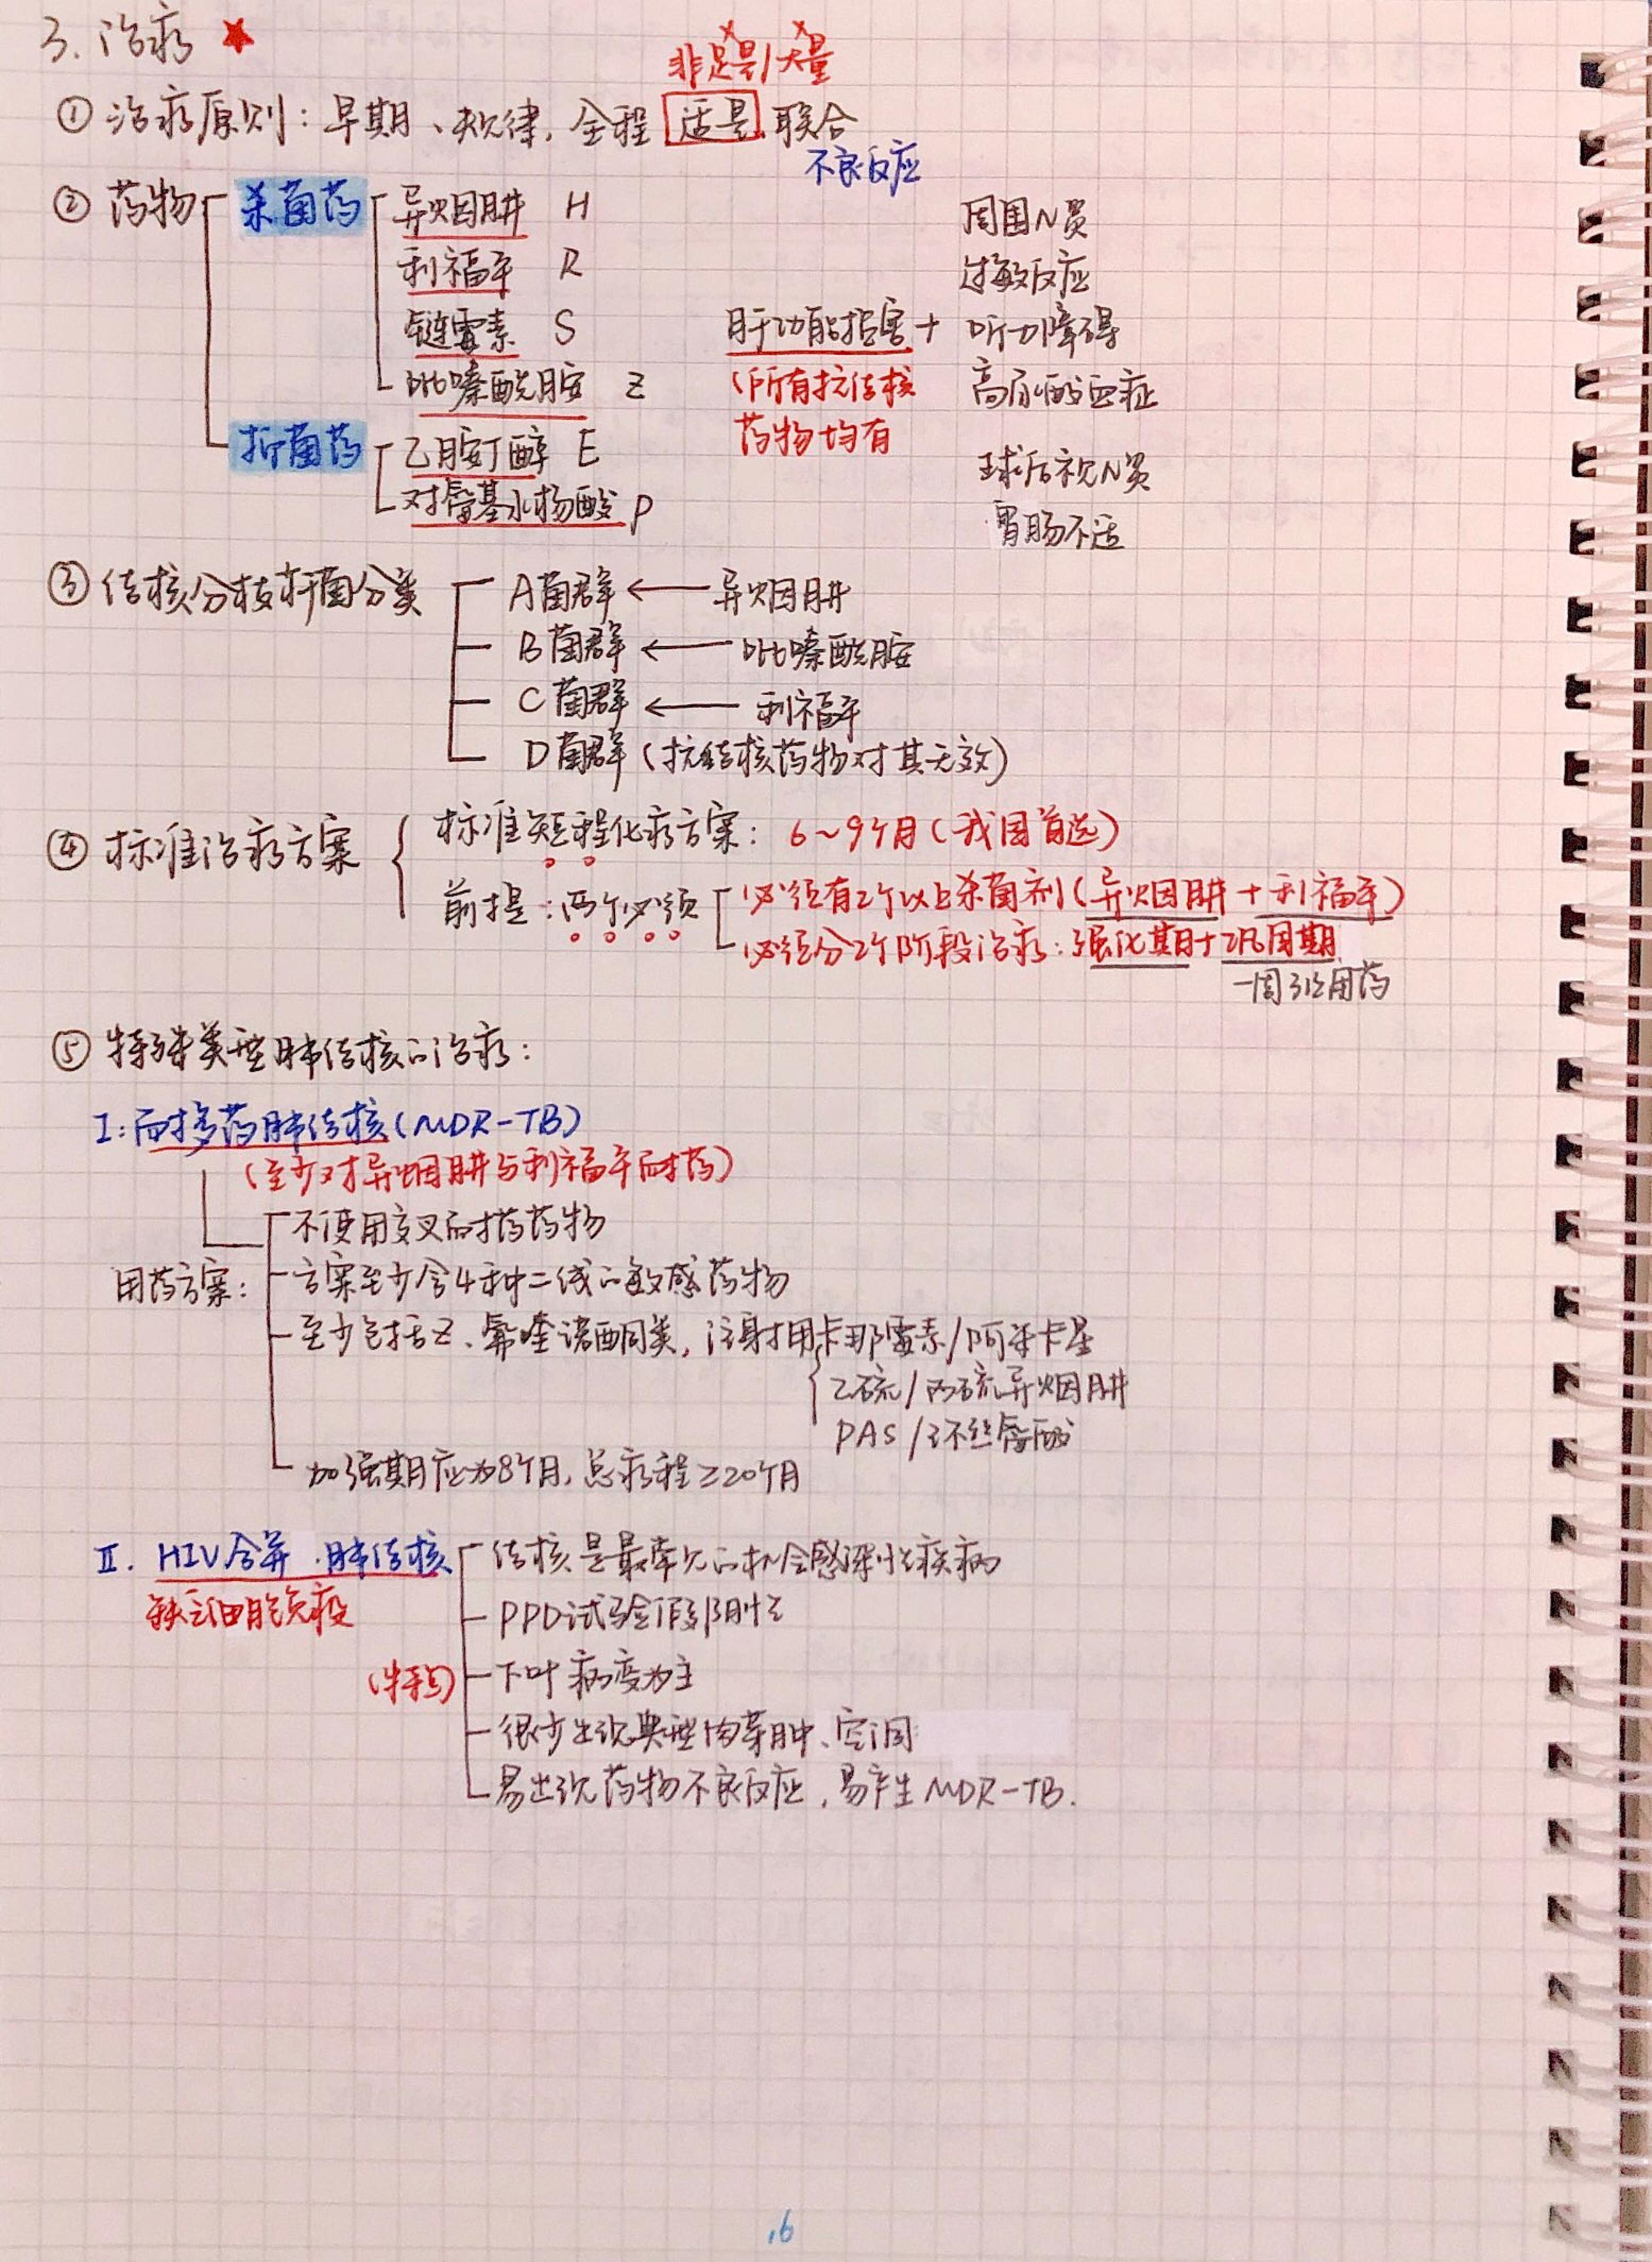 3. 治疗 ★
非足量/大量
① 治疗原则：早期、规律、全程 适量 联合
不良反应
② 药物 杀菌药 异烟肼 H 周围N炎
利福平 R 过敏反应
链霉素 S 肝功能损害 + 听力障碍
吡嗪酰胺 Z (所有抗结核 高尿酸血症
抑菌药 乙胺丁醇 E 药物均有 球后视N炎
对氨基水杨酸 P 胃肠不适
③ 结核分枝杆菌分类 A菌群 ← 异烟肼
B菌群 ← 吡嗪酰胺
C菌群 ← 利福平
D菌群 (抗结核药物对其无效)
④ 标准治疗方案 标准短程化疗方案： 6～9个月 (我国首选)
前提：两个必须 必须有2个以上杀菌剂 (异烟肼 + 利福平)
必须分2个阶段治疗：强化期+巩固期
一周3次用药
⑤ 特殊类型肺结核的治疗：
I：耐多药肺结核 (MDR-TB)
(至少对异烟肼与利福平耐药)
不使用交叉耐药药物
用药方案： 方案至少含4种二线的敏感药物
至少包括Z、氟喹诺酮类，注射用卡那霉素/阿米卡星
乙硫/丙硫异烟肼
PAS/环丝氨酸
加强期应为8个月，总疗程≥20个月
II. HIV合并肺结核 结核是最常见的机会感染性疾病
缺乏细胞免疫 PPD试验假阴性
(特点) 下叶病变为主
很少出现典型肉芽肿、空洞
易出现药物不良反应，易产生MDR-TB.
16